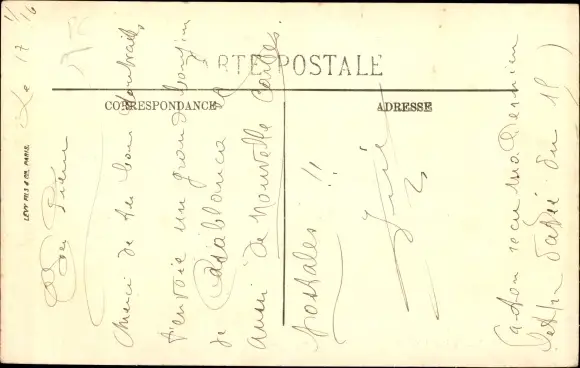 CARTE POSTALE
CORRESPONDANCE
ADRESSE
LEVY FILS & CIE, PARIS.
Le 17/1/16
Merci de tes bons souhaits,
t'envoie un grand bonjour
de Casablanca et
aussi de nouvelles cartes
postales !!
a-t-on reçu ma dernière
lettre datée du 11 ?